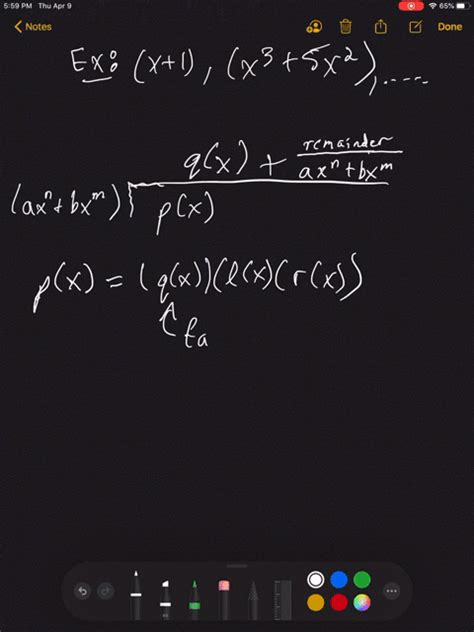 5:59 PM Thu Apr 9
65%
Notes
Done
Ex: (x+1), (x³+5x²), .....
q(x) + remainder/(axⁿ+bxᵐ)
(axⁿ+bxᵐ) p(x)
p(x) = (q(x))(l(x)(r(x))
fa